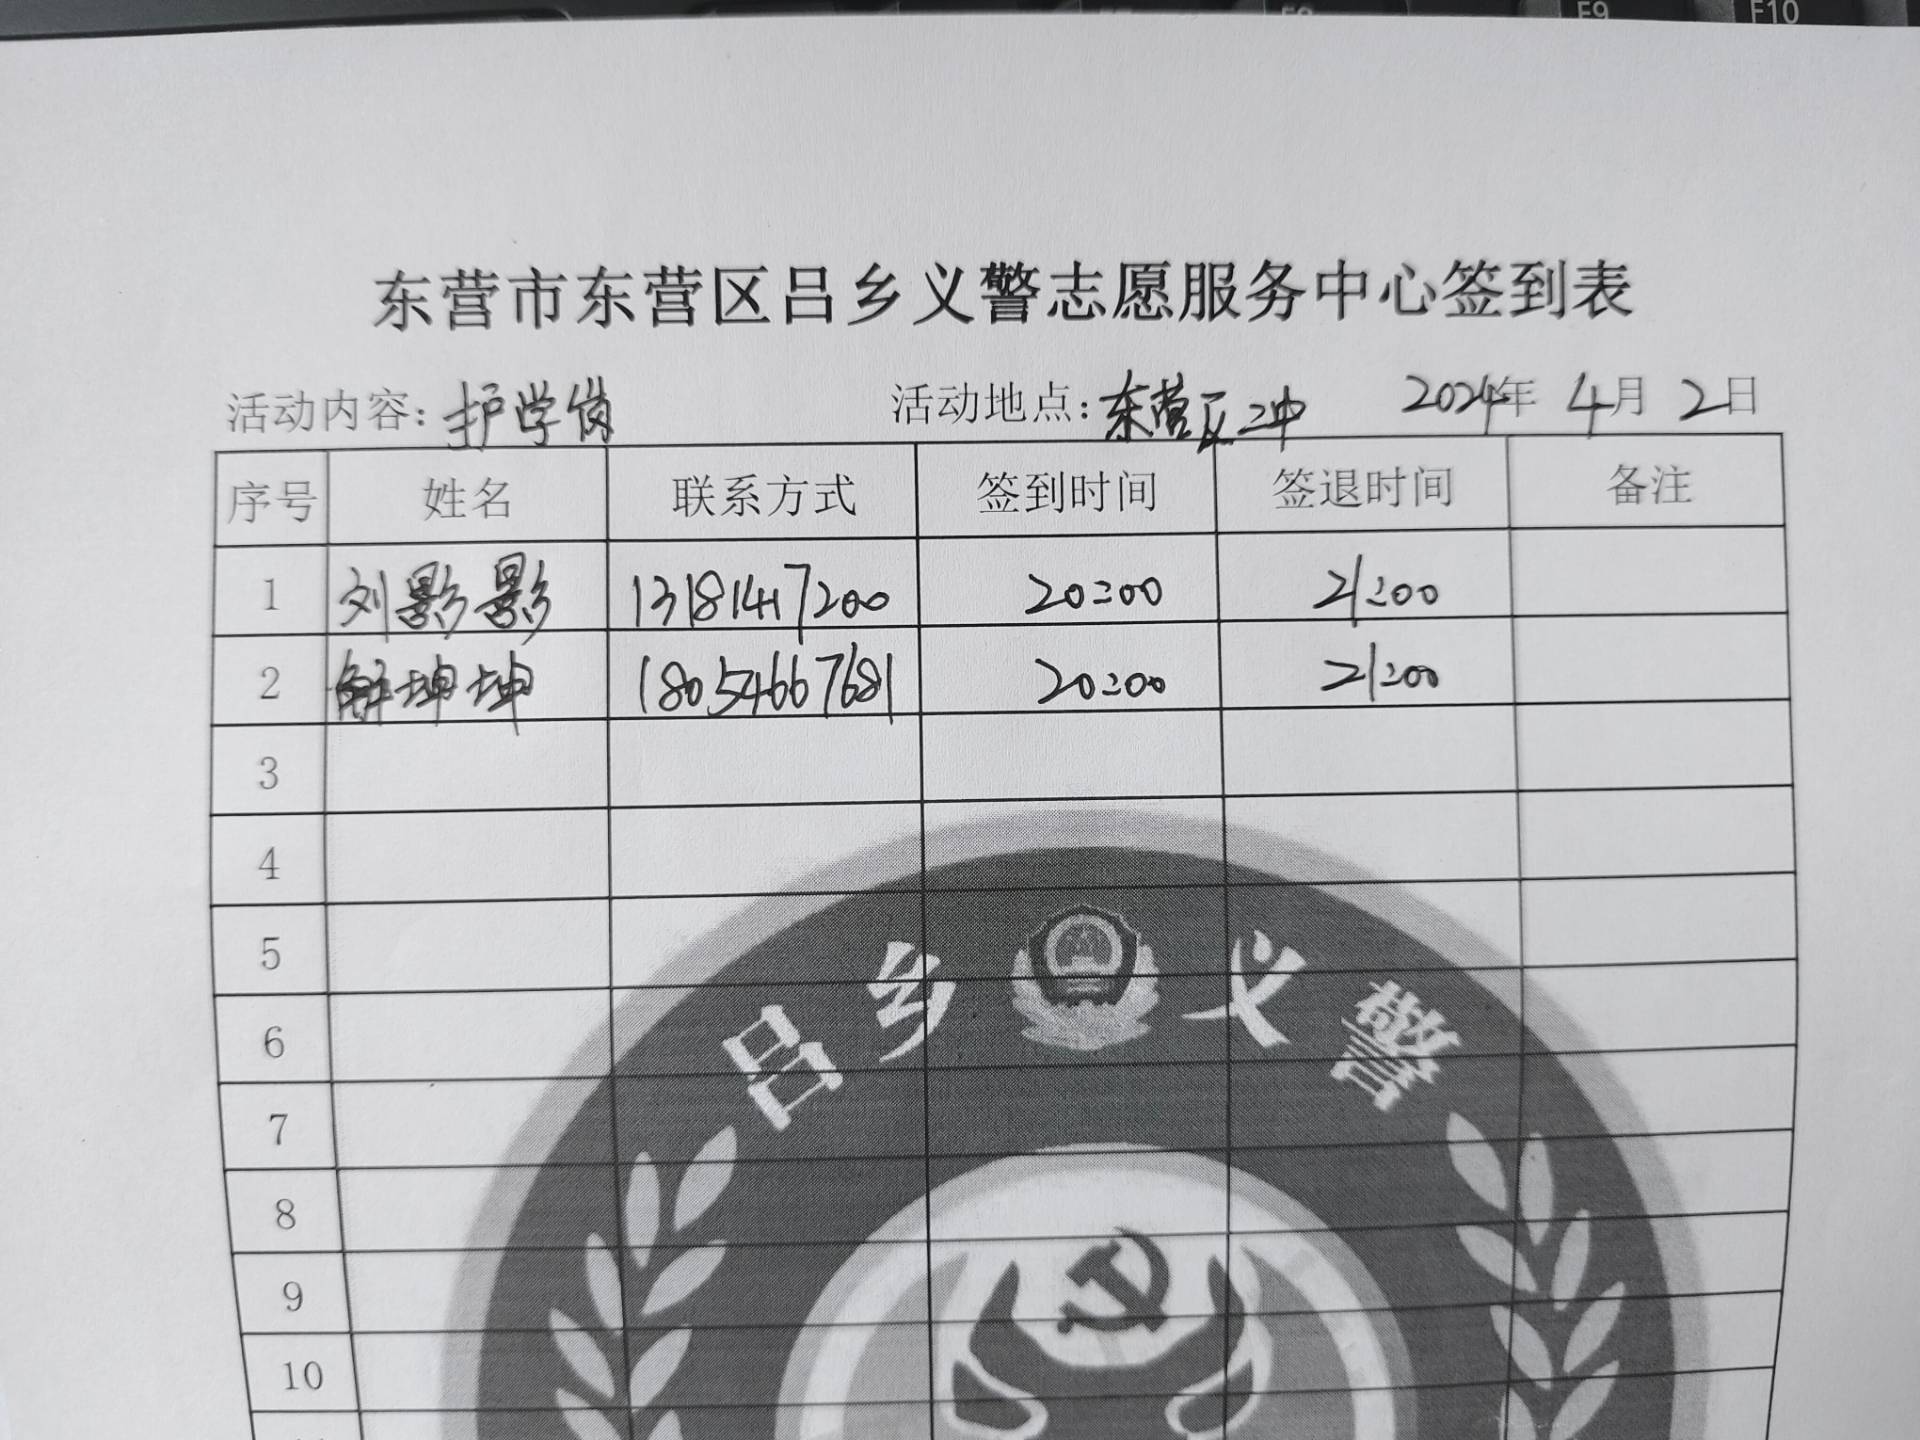 F9 F10
东营市东营区吕乡义警志愿服务中心签到表
活动内容：护学岗 活动地点：东营区二中 2024年 4月 2日
序号 姓名 联系方式 签到时间 签退时间 备注
1 刘影影 13181417200 20:00 21:00
2 解坤坤 18054667681 20:00 21:00
3
4
5
6
7
8
9
10
吕乡义警